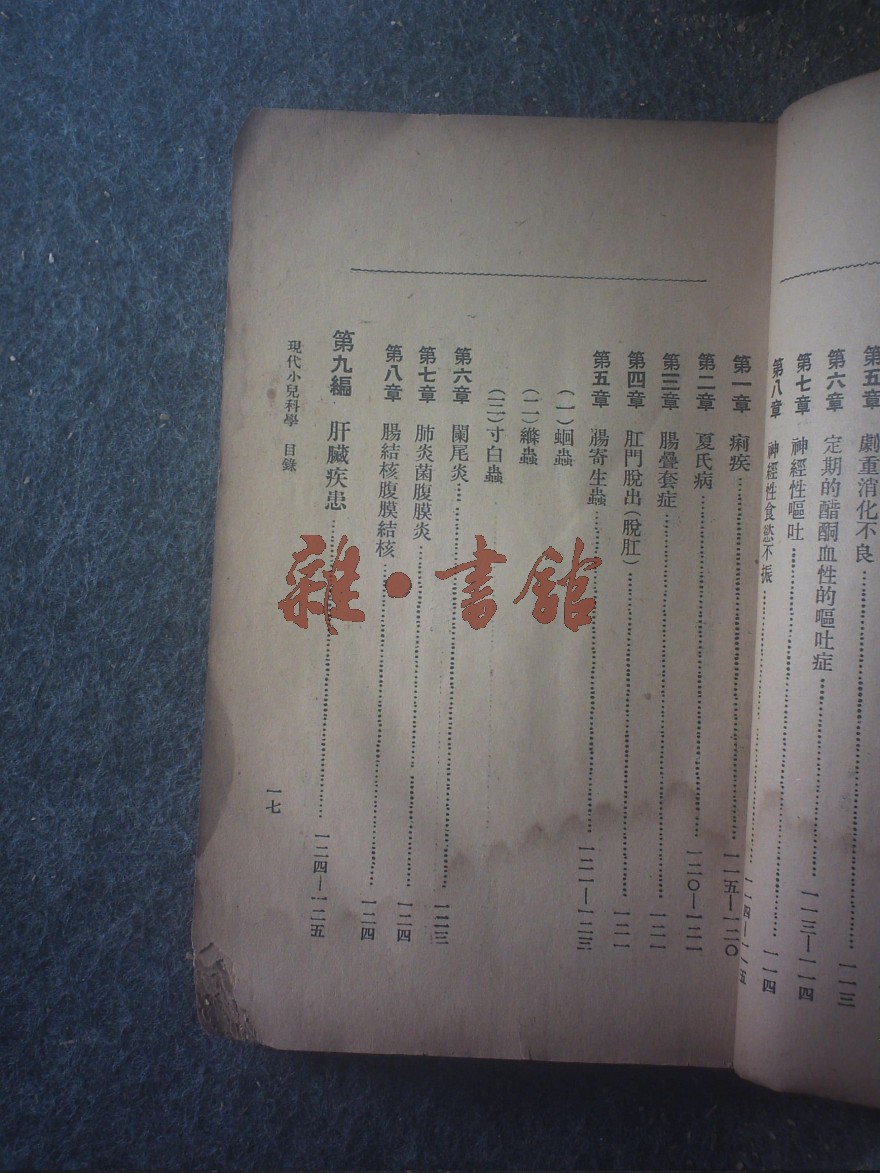 第五章 劇重消化不良……一一三
第六章 定期的醋酮血性的嘔吐症……一一三—一一四
第七章 神經性嘔吐……一一四
第八章 神經性食慾不振……一一四—一一五
第一章 痢疾……一一五—一二〇
第二章 夏氏病……一二〇—一二一
第三章 腸疊套症……一二一
第四章 肛門脫出(脫肛)……一二一
第五章 腸寄生蟲……一二一—一二三
(一)蛔蟲
(二)縧蟲
(三)寸白蟲
第六章 闌尾炎……一二三
第七章 肺炎菌腹膜炎……一二四
第八章 腸結核腹膜結核……一二四
第九編 肝臟疾患……一二四—一二五
現代小兒科學 目錄
一七
雜·書館